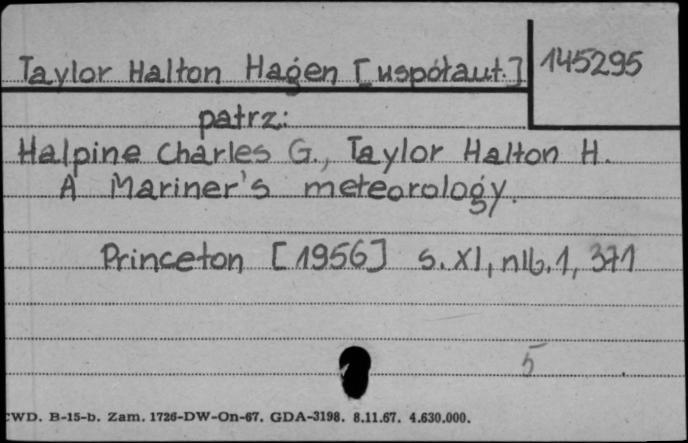 Taylor Halton Hagen [współaut.] 145295
patrz:
Halpine Charles G., Taylor Halton H.
A Mariner's meteorology.
Princeton [1956] s. XI, nlb. 1, 371
5
WD. B-15-b. Zam. 1726-DW-On-67. GDA-3198. 8.11.67. 4.630.000.